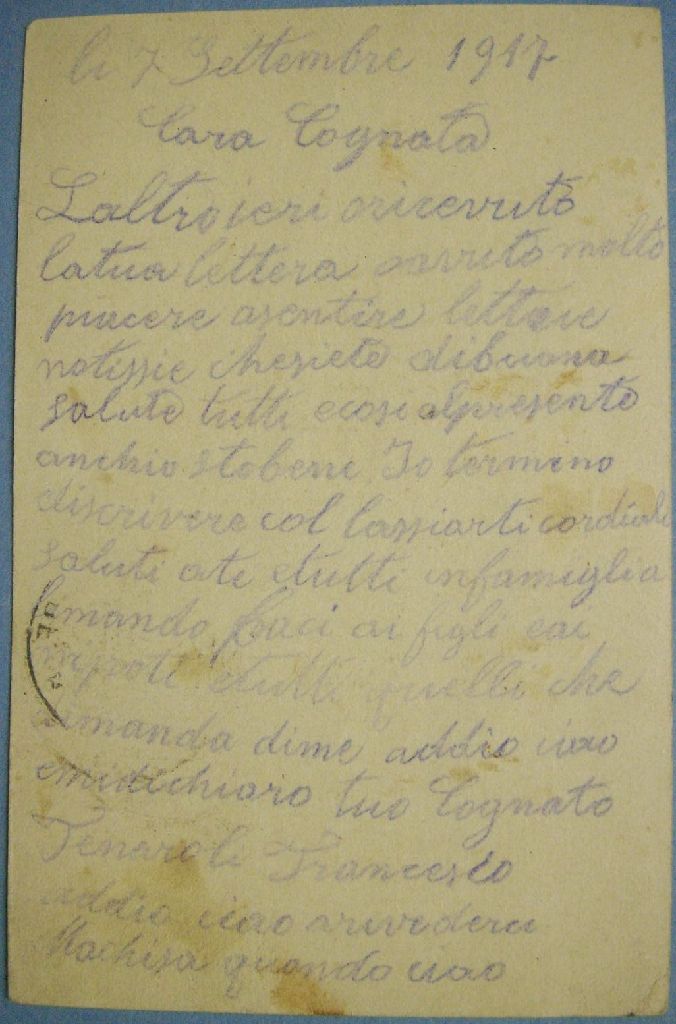 li 7 Settembre 1917
Cara Cognata
Laltroieri oricevuto
latua lettera oavuto molto
piacere asentire lettue
notissie chesiete dibuona
salute tutti ecosi alpresento
anchio stobene. Io termino
discrivere col lassiarti cordiali
saluti ate etutti infamiglia
timando baci ai figli eai
nipoti etutti quelli che
dimanda dime addio ciao
emidichiaro tuo Cognato
Tenaroli Francesco
addio ciao arivederci
Machisa quando ciao